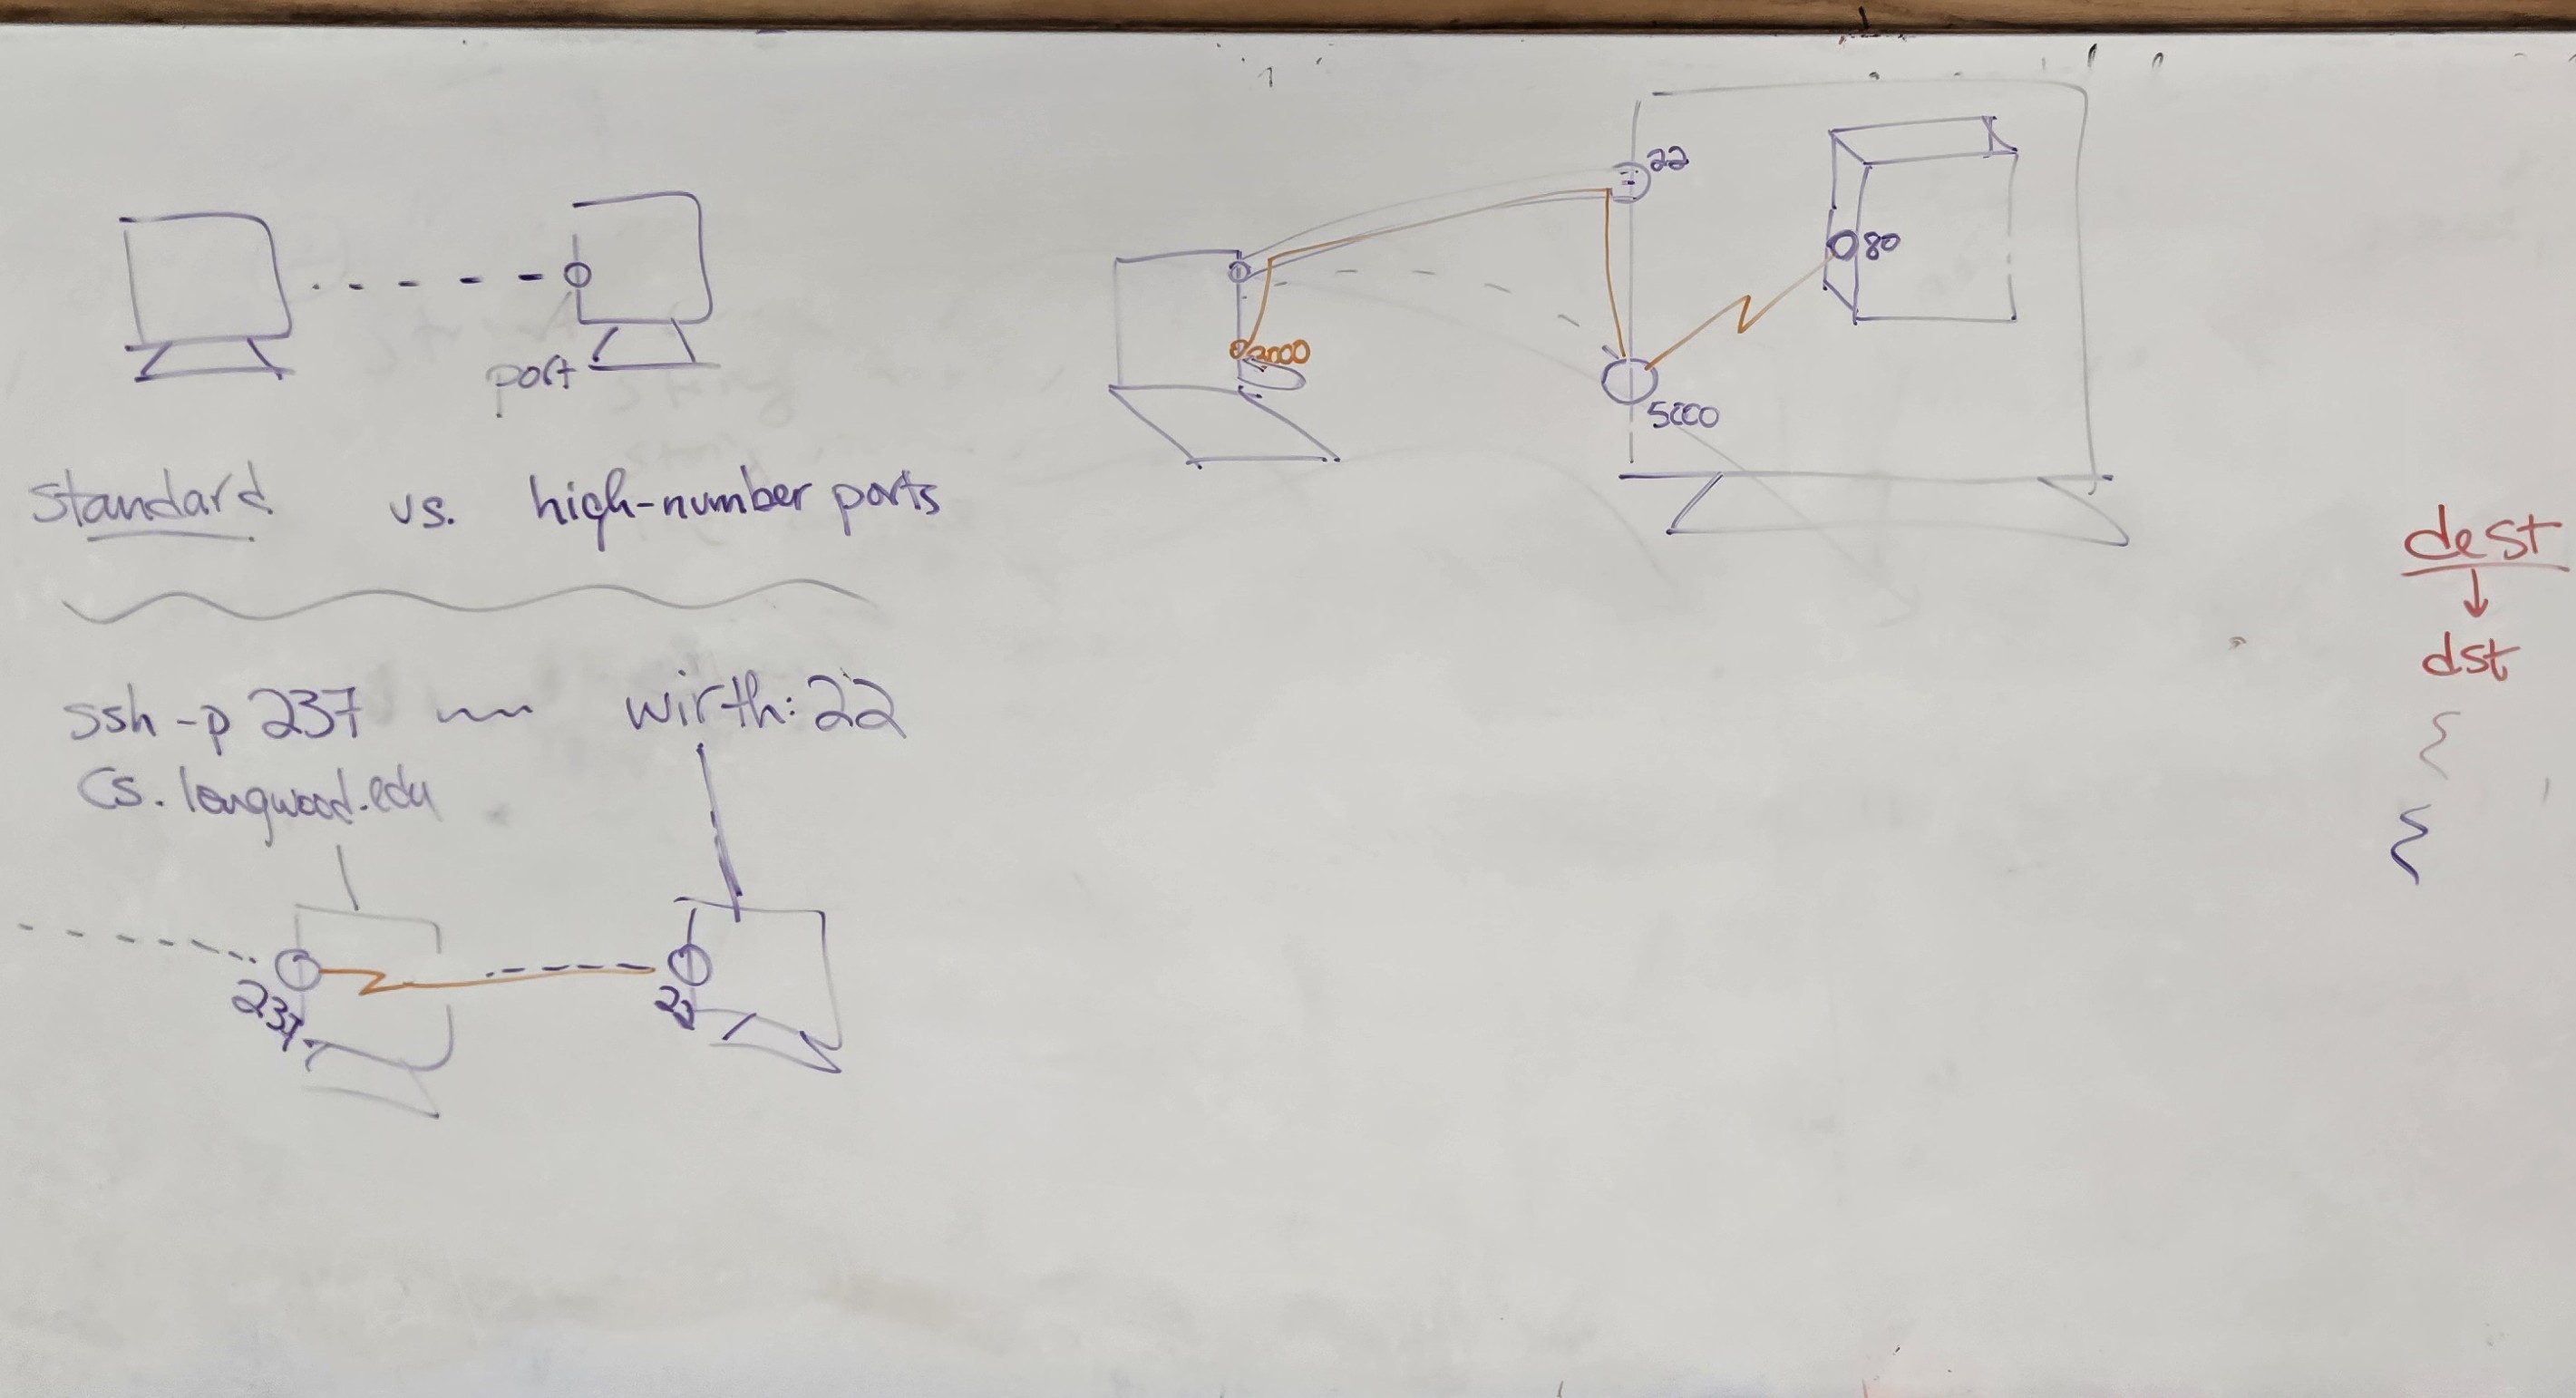 port
standard vs. high-number ports
ssh -p 237 wirth:22
cs.longwood.edu
237
22
22
80
5000
dest
dst